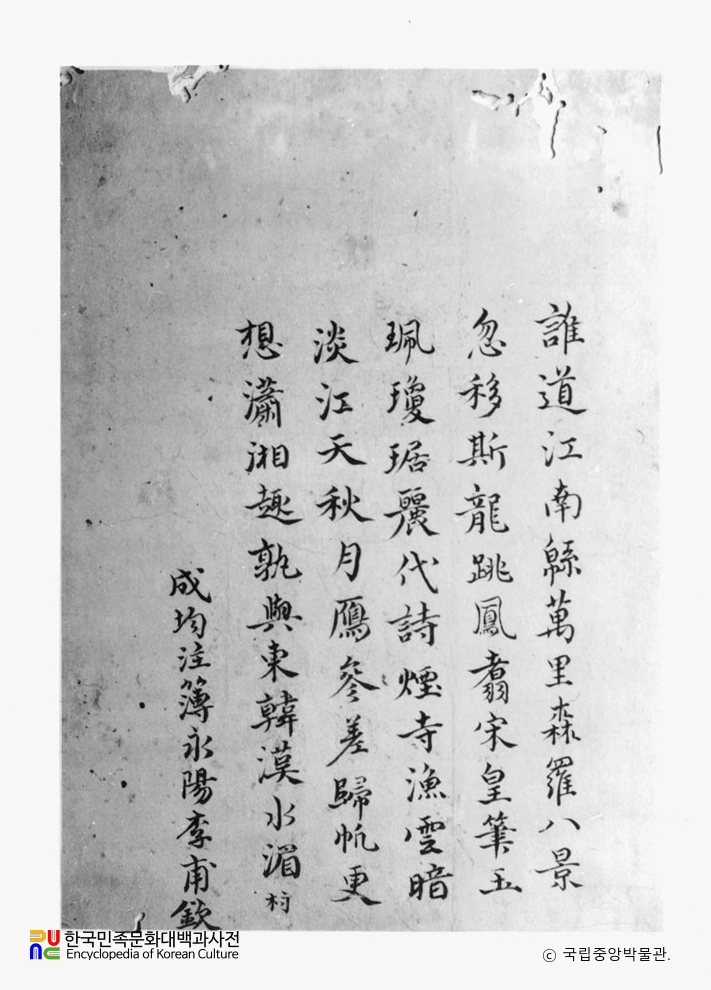 誰道江南緜萬里森羅八景
忽移斯龍跳鳳翥宋皇筆玉
珮瓊琚麗代詩煙寺漁雲暗
淡江天秋月鴈參差歸帆更
想瀟湘趣孰與東韓漢水湄村
成均注簿永陽李甫欽
한국민족문화대백과사전
Encyclopedia of Korean Culture
ⓒ 국립중앙박물관.